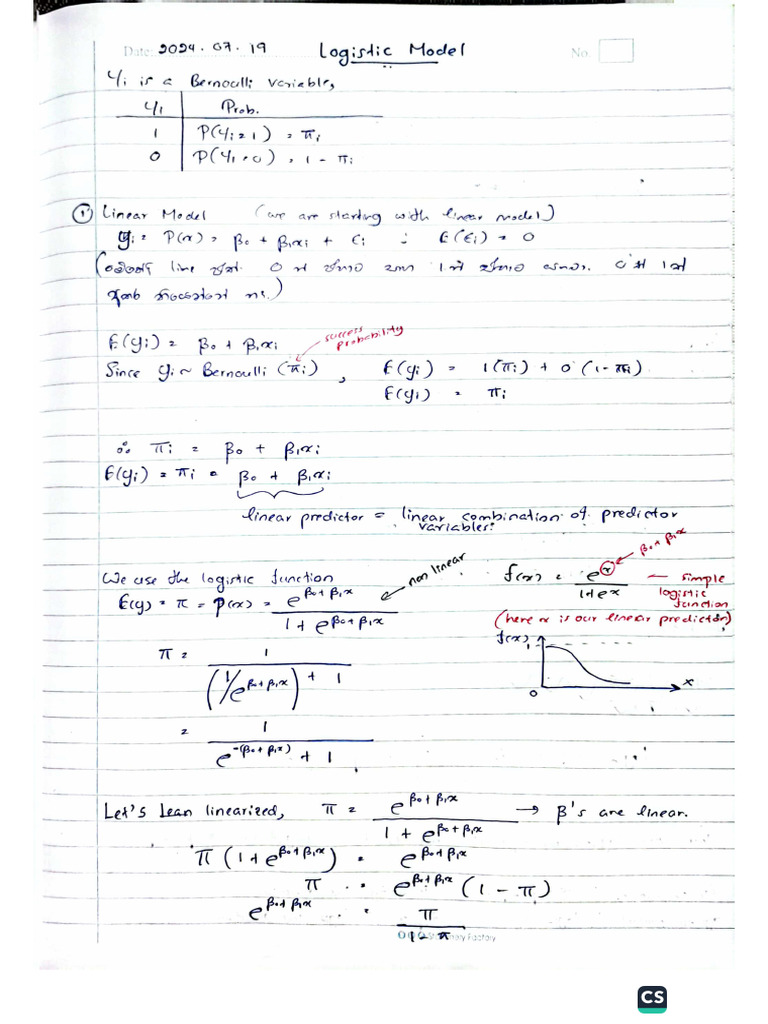 Date: 2024.07.19 Logistic Model No.
Yi is a Bernoulli variable,
Yi Prob.
1 P(Yi = 1) = πi
0 P(Yi = 0) = 1 - πi
① Linear Model (we are starting with linear model)
yi = P(x) = β0 + β1xi + εi ; E(εi) = 0
line 0 1 0 1
E(yi) = β0 + β1xi
success probability
Since yi ~ Bernoulli (πi), E(yi) = 1(πi) + 0(1-πi)
E(yi) = πi
∴ πi = β0 + β1xi
E(yi) = πi = β0 + β1xi
linear predictor = linear combination of predictor variables.
We use the logistic function
E(y) = π = P(x) = e^(β0+β1x) / (1 + e^(β0+β1x)) ← non linear
f(x) = e^x / (1+e^x) ← β0 + β1x — simple logistic function
(here x is our linear predictor)
f(x)
1
0 x
π = 1 / ((1/e^(β0+β1x)) + 1)
= 1 / (e^-(β0+β1x) + 1)
Let's Lean linearized, π = e^(β0+β1x) / (1 + e^(β0+β1x)) → β's are linear.
π(1+e^(β0+β1x)) = e^(β0+β1x)
π = e^(β0+β1x) (1 - π)
e^(β0+β1x) = π / (1-π)
Factory
CS